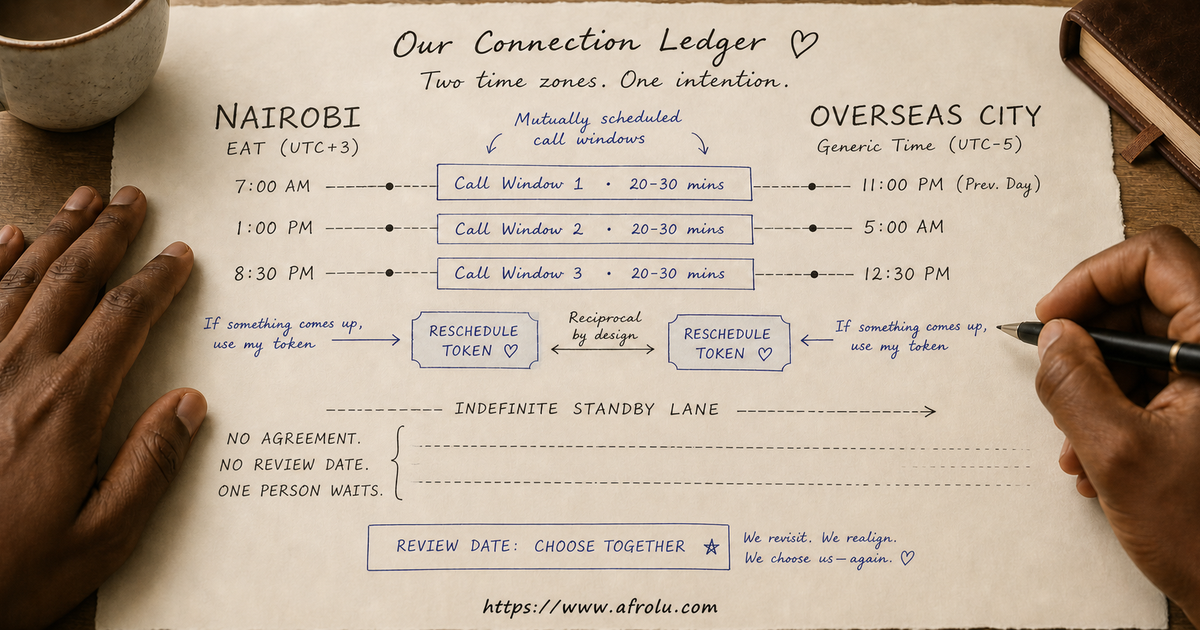 Our Connection Ledger ♡
Two time zones. One intention.
NAIROBI
EAT (UTC+3)
Mutually scheduled
call windows
OVERSEAS CITY
Generic Time (UTC-5)
7:00 AM Call Window 1 • 20-30 mins 11:00 PM (Prev. Day)
1:00 PM Call Window 2 • 20-30 mins 5:00 AM
8:30 PM Call Window 3 • 20-30 mins 12:30 PM
If something comes up,
use my token
RESCHEDULE
TOKEN ♡
Reciprocal
by design
RESCHEDULE
TOKEN ♡
If something comes up,
use my token
INDEFINITE STANDBY LANE
NO AGREEMENT.
NO REVIEW DATE.
ONE PERSON WAITS.
REVIEW DATE: CHOOSE TOGETHER ☆
We revisit. We realign.
We choose us—again. ♡
https://www.afrolu.com